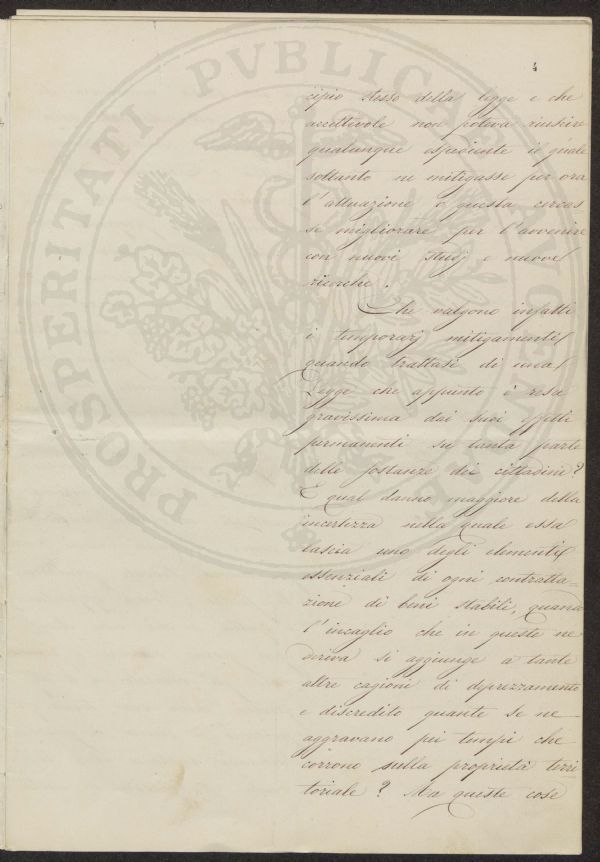 4
cipio stesso della legge e che
accettevole non poteva riuscire
qualunque espediente il quale
soltanto ne mitigasse per ora
l'attuazione e questa cercas
se migliorare per l'avvenire
con nuovi studj e nuove
ricerche.
Che valgono infatti
i temporarj mitigamenti
quando trattasi di una
Legge che appunto è resa
gravissima dai suoi effetti
permanenti su tanta parte
delle sostanze dei cittadini?
E qual danno maggiore della
incertezza nella quale essa
lascia uno degli elementi
essenziali di ogni contratta=
zione di beni stabili, quando
l'incaglio che in queste ne
deriva si aggiunge a tante
altre cagioni di deprezzamento
e discredito quante se ne
aggravano pei tempi che
corrono sulla proprietà terri
toriale? Ma queste cose
PROSPERITATI PVBLICAE AVGENDAE